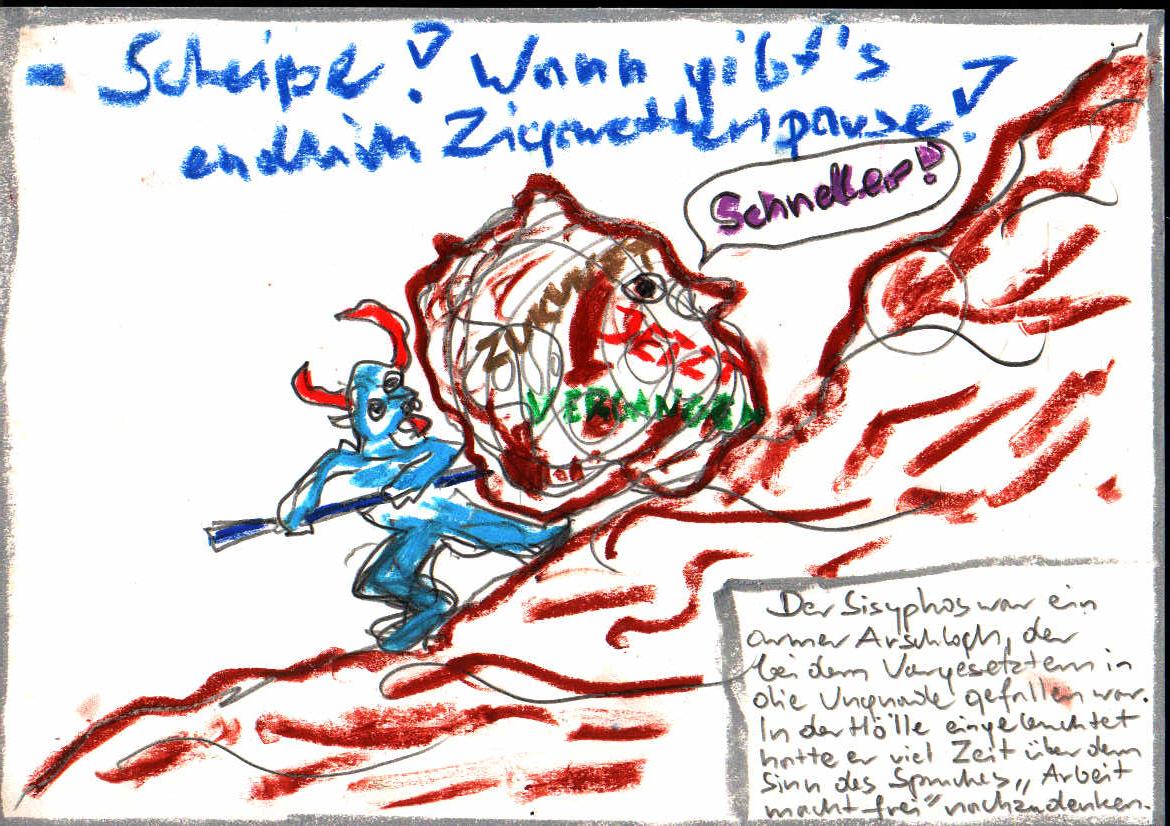 - Scheiße! Wann gibt's
endlich Zigarettenpause!
Schneller!
ZUKUNFT
JETZT
VERGANGEN
Der Sisyphos war ein
armer Arschloch, der
bei dem Vorgesetztem in
die Ungnade gefallen war.
In der Hölle eingeleuchtet
hatte er viel Zeit über dem
Sinn des Spruches „Arbeit
macht frei" nachzudenken.